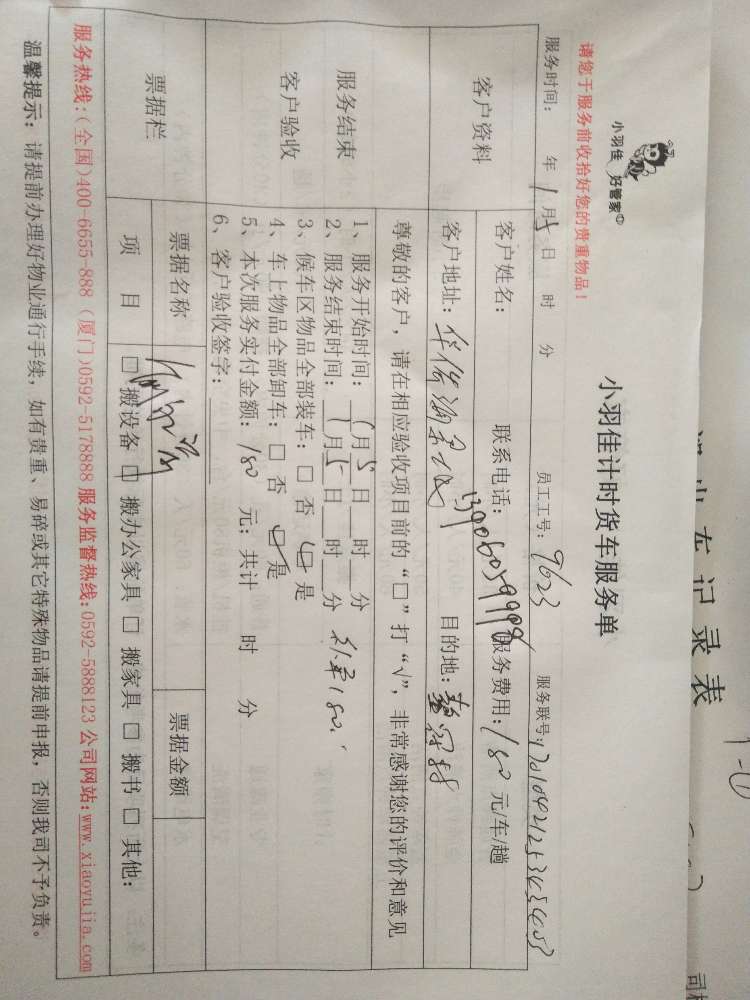 小羽佳 好管家
小羽佳计时货车服务单
请您于服务前收拾好您的贵重物品！
服务时间： 年 1 月 5 日 时 分 员工工号：9623 服务联号：
客户资料
客户姓名： 联系电话： 服务费用：180 元/车/趟
客户地址： 目的地：
服务结束
客户验收
尊敬的客户，请在相应验收项目前的“□”打“√”，非常感谢您的评价和意见
1、服务开始时间：1月5日 时 分
2、服务结束时间：1月5日 时 分
3、候车区物品全部装车：□ 否 □ 是
4、车上物品全部卸车：□ 否 □ 是
5、本次服务实付金额：180 元；共计 时 分
6、客户验收签字：
票据栏
票据名称 票据金额
项 目 □ 搬设备 □ 搬办公家具 □ 搬家具 □ 搬书 □ 其他：
服务热线：(全国)400-6655-888 (厦门)0592-5178888 服务监督热线:0592-5888123 公司网站:www.xiaoyujia.com
温馨提示：请提前办理好物业通行手续，如有贵重、易碎或其它特殊物品请提前申报，否则我司不予负责。
记录表